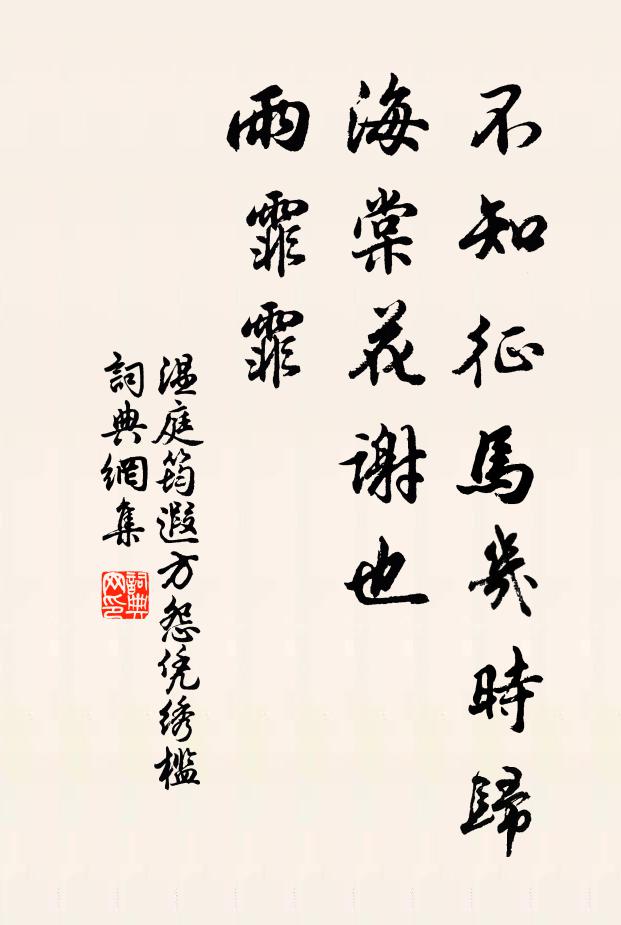 不知征馬幾時歸
海棠花謝也
雨霏霏
温庭筠遐方怨凭绣檻
詞典網集
詞典网印